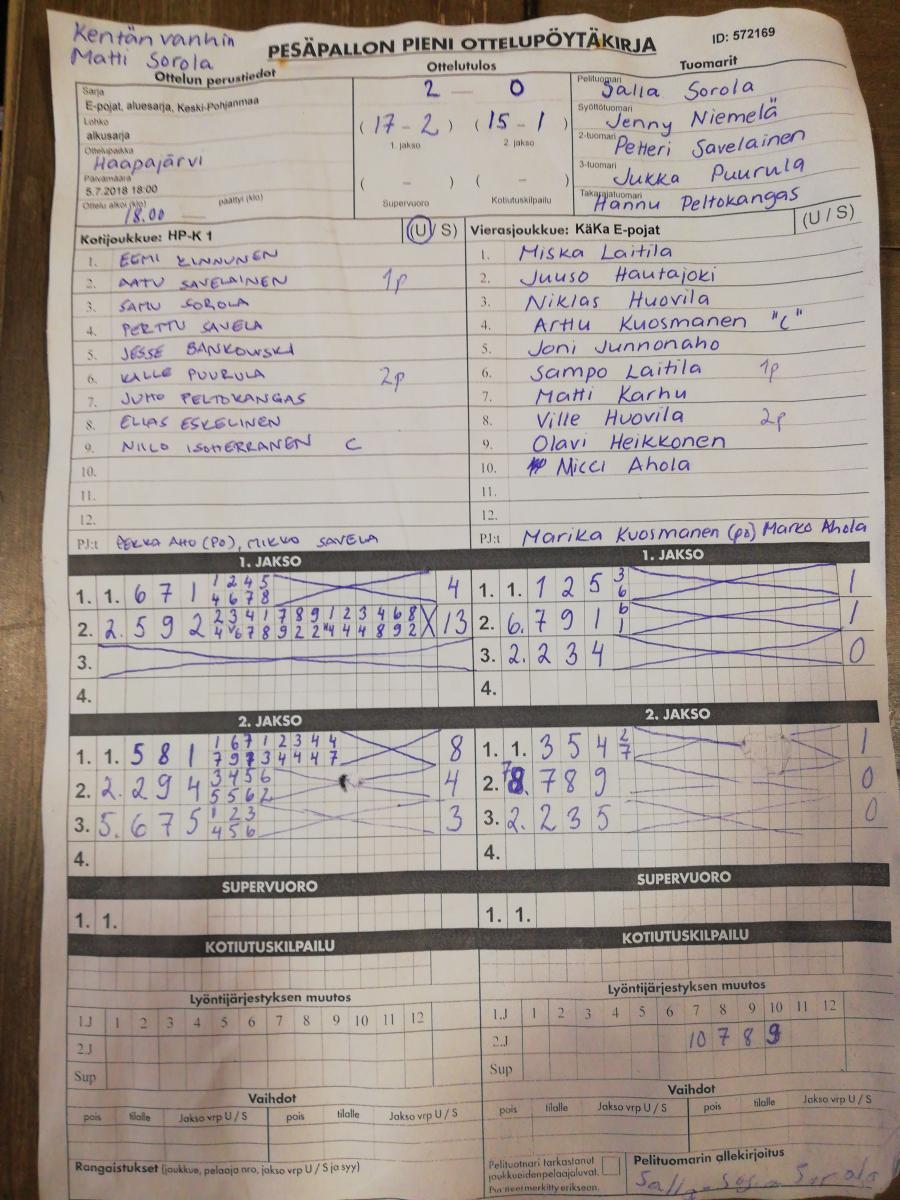 Kentän vanhin
Matti Sorola
PESÄPALLON PIENI OTTELUPÖYTÄKIRJA
ID: 572169
Ottelun perustiedot
Sarja
E-pojat, aluesarja, Keski-Pohjanmaa
Lohko
alkusarja
Ottelupaikka
Haapajärvi
Päivämäärä
5.7.2018 18:00
Ottelu alkoi (klo) päättyi (klo)
18.00
Ottelutulos
2 — 0
(17 - 2) (15 - 1)
1. jakso 2. jakso
( - ) ( - )
Supervuoro Kotiutuskilpailu
Tuomarit
Pelituomari
Salla Sorola
Syöttötuomari
Jenny Niemelä
2-tuomari
Petteri Savelainen
3-tuomari
Jukka Puurula
Takarajatuomari
Hannu Peltokangas
Kotijoukkue: HP-K 1 (U / S)
1. EEMI KINNUNEN
2. AATU SAVELAINEN 1p
3. SAMU SOROLA
4. PERTTU SAVELA
5. JESSE BANKOWSKI
6. KALLE PUURULA 2p
7. JUHO PELTOKANGAS
8. ELIAS ESKELINEN
9. NIILO ISOHERRANEN C
10.
11.
12.
PJ:t PEKKA AHO (PO), MIKKO SAVELA
Vierasjoukkue: KäKa E-pojat (U / S)
1. Miska Laitila
2. Juuso Hautajoki
3. Niklas Huovila
4. Arttu Kuosmanen "C"
5. Joni Junnonaho
6. Sampo Laitila 1p
7. Matti Karhu
8. Ville Huovila 2p
9. Olavi Heikkonen
10. Micci Ahola
11.
12.
PJ:t Marika Kuosmanen (po) Marko Ahola
1. JAKSO
1. 1. 6 7 1 1 2 4 5 4
4 6 7 8
2. 2. 5 9 2 2 3 4 1 7 8 9 1 2 3 4 6 8 X 13
3.
4.
1. JAKSO
1. 1. 1 2 5 3 1
6
2. 6. 7 9 1 6 1
1
3. 2. 2 3 4 0
4.
2. JAKSO
1. 1. 5 8 1 1 6 7 1 2 3 4 4 8
7 9 7 3 4 4 4 7
2. 2. 2 9 4 3 4 5 6 4
5 5 6 2
3. 5. 6 7 5 1 2 3 3
4 5 6
4.
2. JAKSO
1. 1. 3 5 4 2 1
7
2. 8. 7 8 9 0
3. 2. 2 3 5 0
4.
SUPERVUORO
1. 1.
SUPERVUORO
1. 1.
KOTIUTUSKILPAILU
KOTIUTUSKILPAILU
Lyöntijärjestyksen muutos
1.J 1 2 3 4 5 6 7 8 9 10 11 12
2.J
Sup
Lyöntijärjestyksen muutos
1.J 1 2 3 4 5 6 7 8 9 10 11 12
2.J 10 7 8 9
Sup
Vaihdot
pois tilalle Jakso vrp U / S pois tilalle Jakso vrp U / S
Vaihdot
pois tilalle Jakso vrp U / S pois tilalle Jakso vrp U / S
Rangaistukset (joukkue, pelaaja nro, jakso vrp U / S ja syy)
Pelituomari tarkastanut
joukkueiden pelaajaluvat.
Puutteet merkitty erikseen.
Pelituomarin allekirjoitus
Sorola